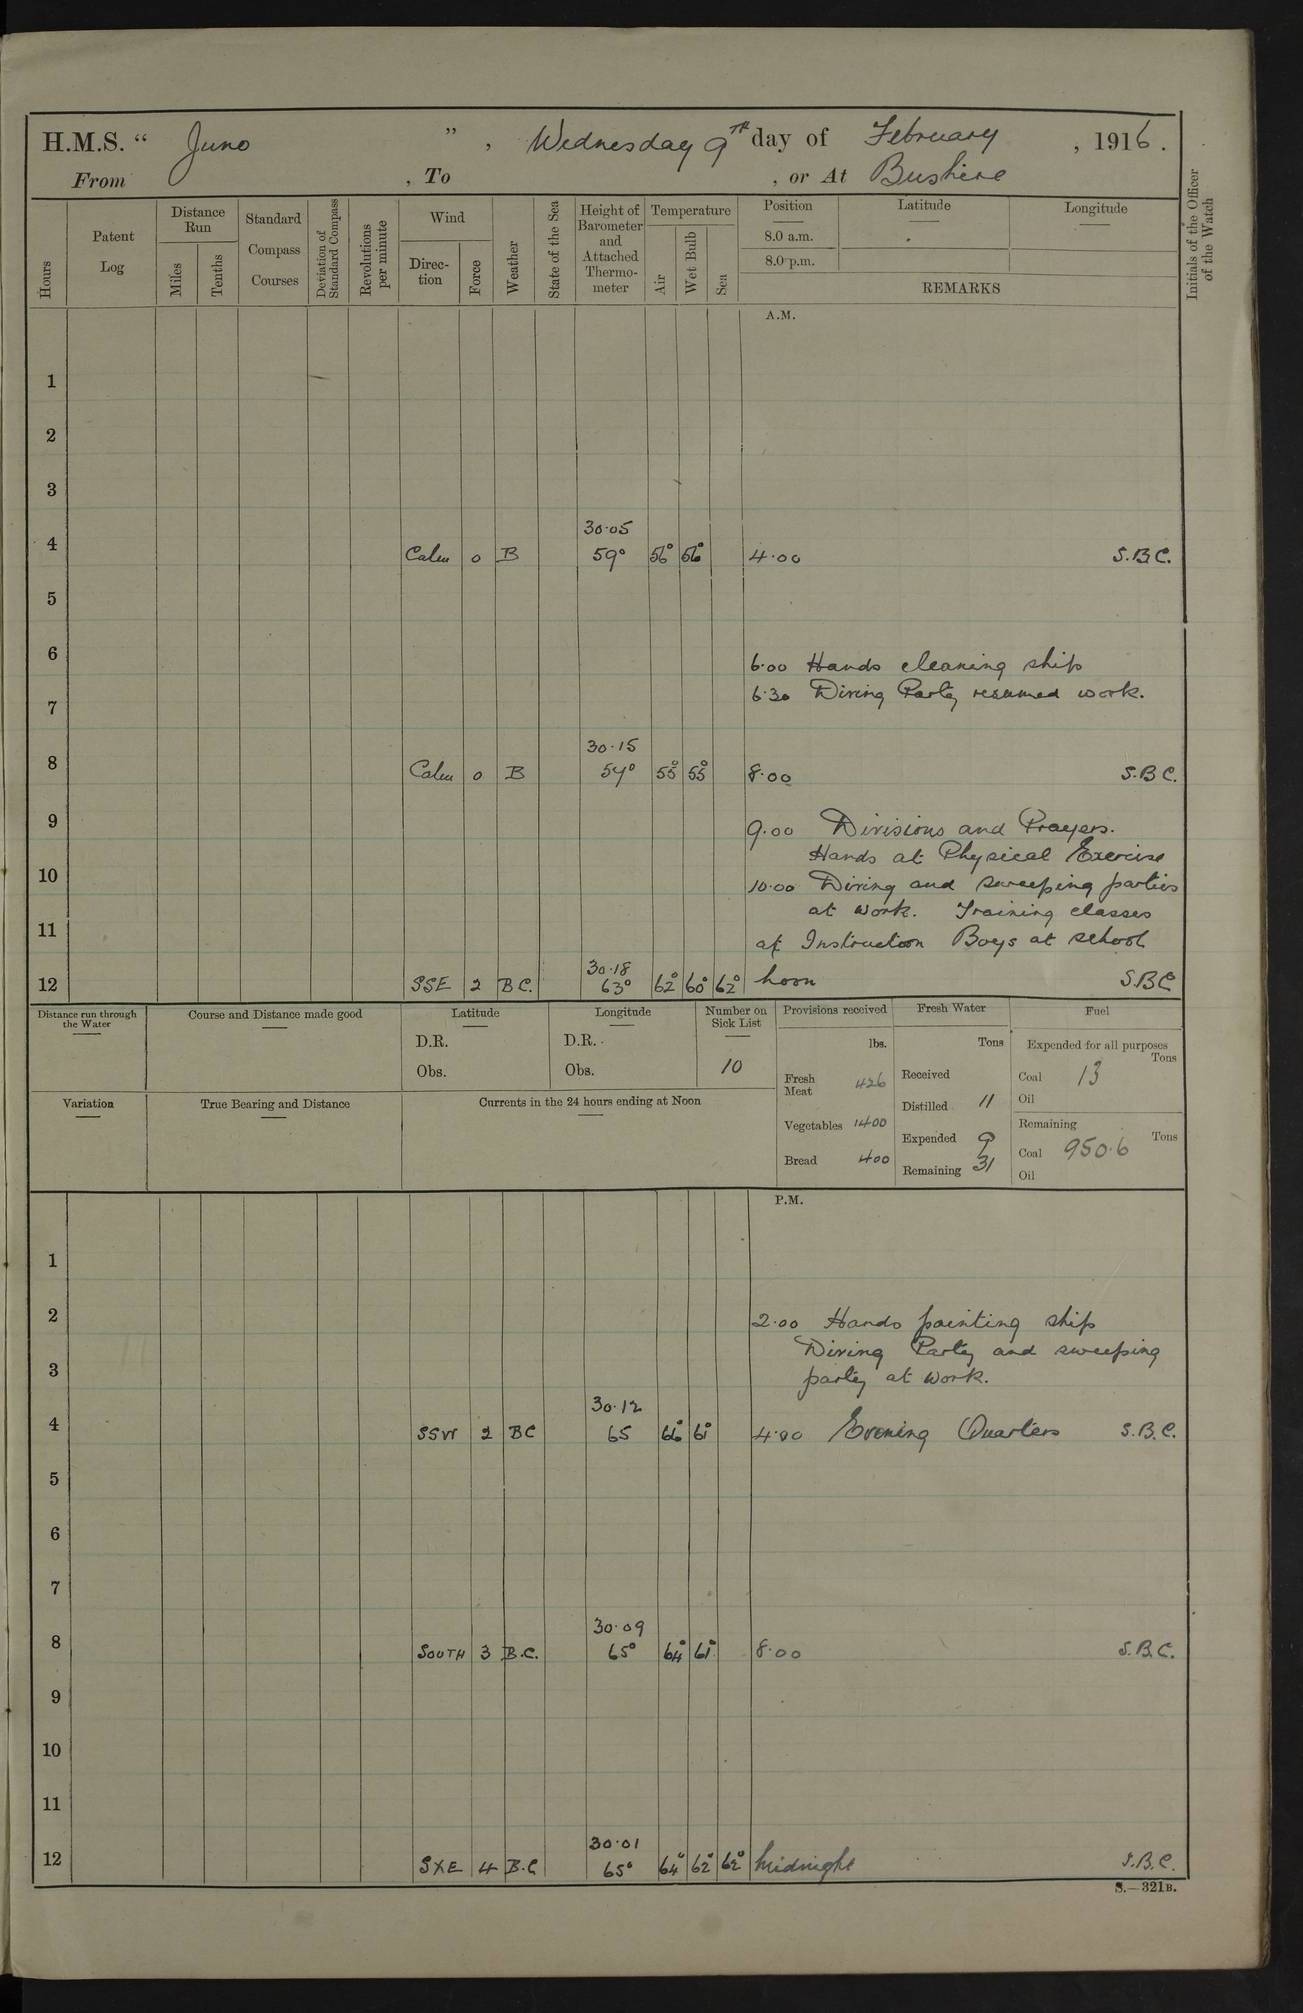 H.M.S. “ Juno ” , Wednesday 9TH day of February , 1916.
From , To , or At Bushire
Hours
Patent Log
Distance Run
Miles
Tenths
Standard Compass Courses
Deviation of Standard Compass
Revolutions per minute
Wind
Direc-tion
Force
Weather
State of the Sea
Height of Barometer and Attached Thermo-meter
Temperature
Air
Wet Bulb
Sea
Position
8.0 a.m.
8.0 p.m.
Latitude
Longitude
REMARKS
Initials of the Officer of the Watch
A.M.
1
2
3
30.05
4 Calm 0 B 59° 56° 56° 4.00 S.B.C.
5
6 6.00 Hands cleaning ship
6.30 Diving Party resumed work.
7
30.15
8 Calm 0 B 54° 55° 55° 8.00 S.B.C.
9 9.00 Divisions and Prayers.
Hands at Physical Exercise
10 10.00 Diving and sweeping parties
at work. Training classes
11 at Instruction Boys at school
30.18
12 SSE 2 B C. 63° 62° 60° 62° noon S.B.C
Distance run through the Water
Course and Distance made good
Latitude
D.R.
Obs.
Longitude
D.R.
Obs.
Number on Sick List
10
Provisions received
lbs.
Fresh Meat 426
Vegetables 1400
Bread 400
Fresh Water
Tons
Received
Distilled 11
Expended 9
Remaining 31
Fuel
Expended for all purposes
Tons
Coal 13
Oil
Remaining
Tons
Coal 950.6
Oil
Variation
True Bearing and Distance
Currents in the 24 hours ending at Noon
P.M.
1
2 2.00 Hands painting ship
Diving Party and sweeping
3 party at work.
30.12
4 SSW 2 BC 65 66° 61° 4.00 Evening Quarters S.B.C.
5
6
7
30.09
8 SOUTH 3 B.C. 65° 64° 61° 8.00 S.B.C.
9
10
11
30.01
12 SXE 4 B.C 65° 64° 62° 62° Midnight S.B.C.
S.—321B.